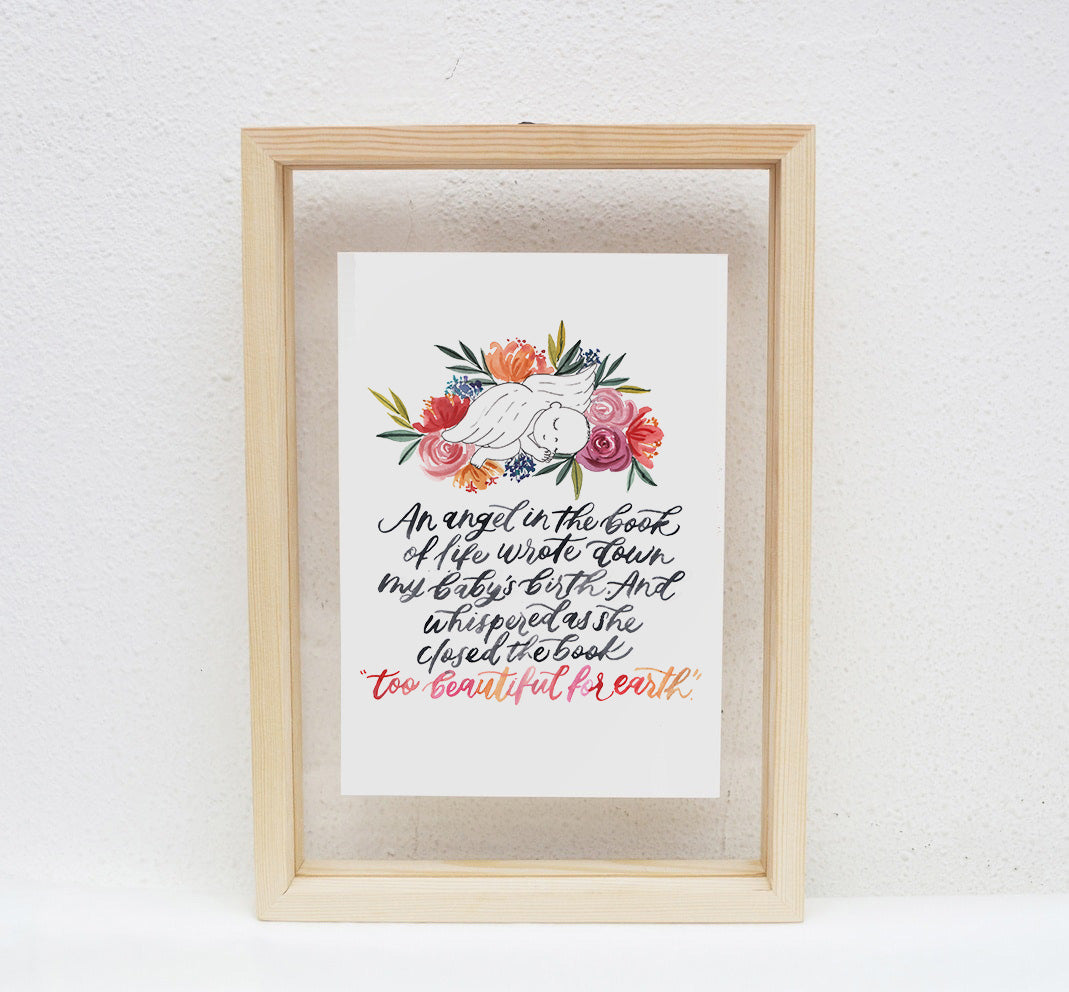 An angel in the book
of life wrote down
my baby's birth. And
whispered as she
closed the book
"too beautiful for earth".